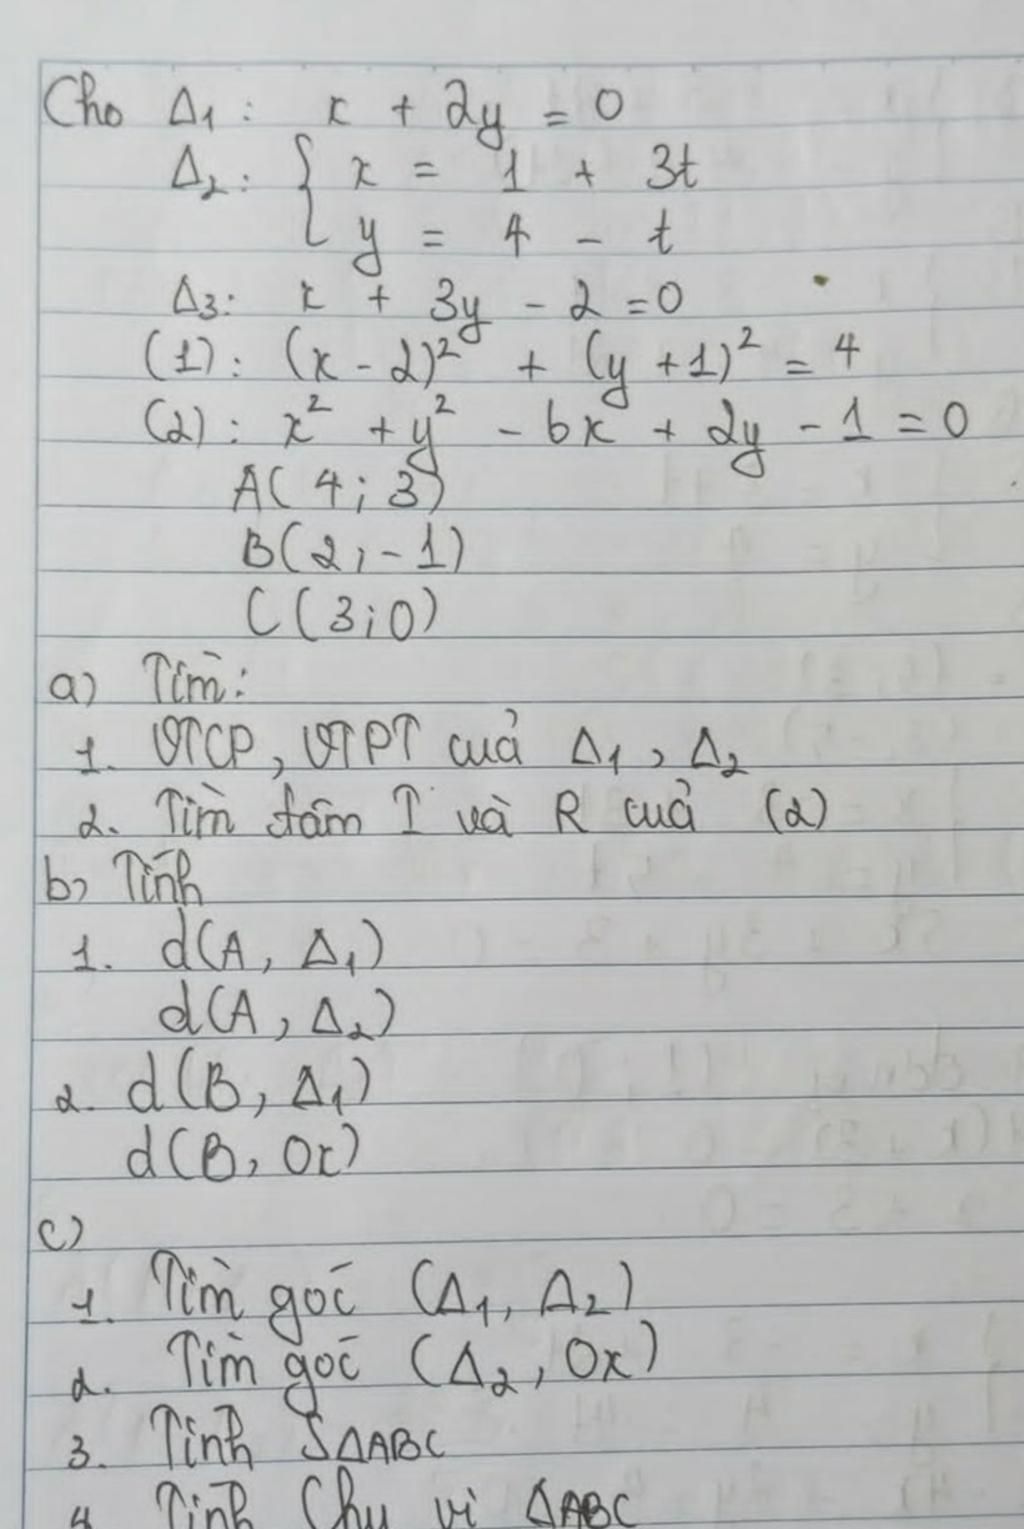 Cho Δ1: x + 2y = 0
Δ2: { x = 1 + 3t
y = 4 - t
Δ3: x + 3y - 2 = 0
(1): (x - 2)² + (y + 1)² = 4
(2): x² + y² - 6x + 2y - 1 = 0
A( 4 ; 3)
B(2 ; -1)
C( 3 ; 0)
a) Tìm:
1. VTCP, VTPT cuả Δ1, Δ2
2. Tìm tâm I và R cuả (2)
b) Tính
1. d(A, Δ1)
d(A, Δ2)
2. d(B, Δ1)
d(B, Ox)
c)
1. Tìm góc (Δ1, Δ2)
2. Tìm góc (Δ2, Ox)
3. Tính SΔABC
4 Tính Chu vi ΔABC